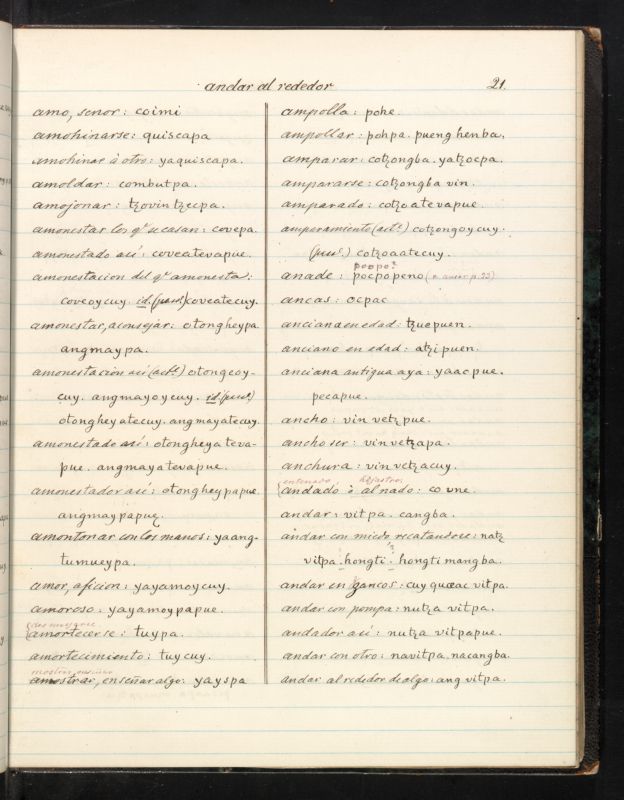 andar al rededor
21.
amo, señor: coimi
amohinarse: quiscapa
amohinar à otro: yaquiscapa.
amoldar: combutpa.
amojonar: tzovin tzecpa.
amonestar los qe se casan: covepa.
amonestado así: coveatevapue.
amonestacion del qe amonesta:
coveoycuy. id. (pasa.) coveatecuy.
amonestar, aconsejar: otongheypa
angmaypa.
amonestacion así (acta.) otongeoy-
cuy. angmayoycuy. id. (pasa.)
otongheyatecuy. angmayatecuy.
amonestado así: otongheyateva-
pue. angmayatevapue.
amonestador así: otongheypapue.
angmaypapue.
amontonar con los manos: yaang-
tumueypa.
amor, aficion: yayamoycuy.
amoroso: yayamoypapue.
amortecerse: tuypa.
amortecimiento: tuycuy.
mostrar, enseñar
amostrar, enseñar algo: yayspa
ampolla: pohe.
ampollar: pohpa. puenghenba.
amparar: cotzongba. yatzocpa.
ampararse: cotzongba vin.
amparado: cotzoatevapue.
amparamiento (acta.) cotzongoycuy.
(pasa.) cotzoaatecuy.
poopo?
anade: pocpopeno (v. ansar p. 22)
ancas: ocpac
anciana en edad: tzuepuen.
anciano en edad: atzipuen.
anciana antigua aya: yaacpue.
pecapue.
ancho: vin vetz pue.
ancho ser: vinvetzapa.
anchura: vinvetzacuy.
entenado hijastro;
andadó ò alnado: co une.
andar: vitpa. cangba.
andar con miedo recatandose: natz
vitpa. hongti. hongti mangba.
andar en zancos: cuy quecac vitpa.
andar con pompa: nutza vitpa.
andador así: nutza vitpapue.
andar con otro: navitpa. nacangba.
andar al rededor de algo: ang vitpa.